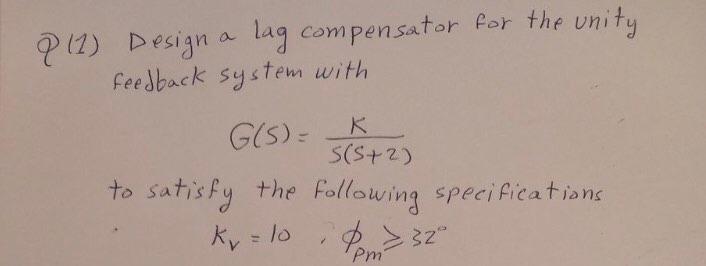 Q(1) Design a lag compensator for the unity
feedback system with
G(S) = K / S(S+2)
to satisfy the following specifications
Kv = 10 , ϕpm ≥ 32°